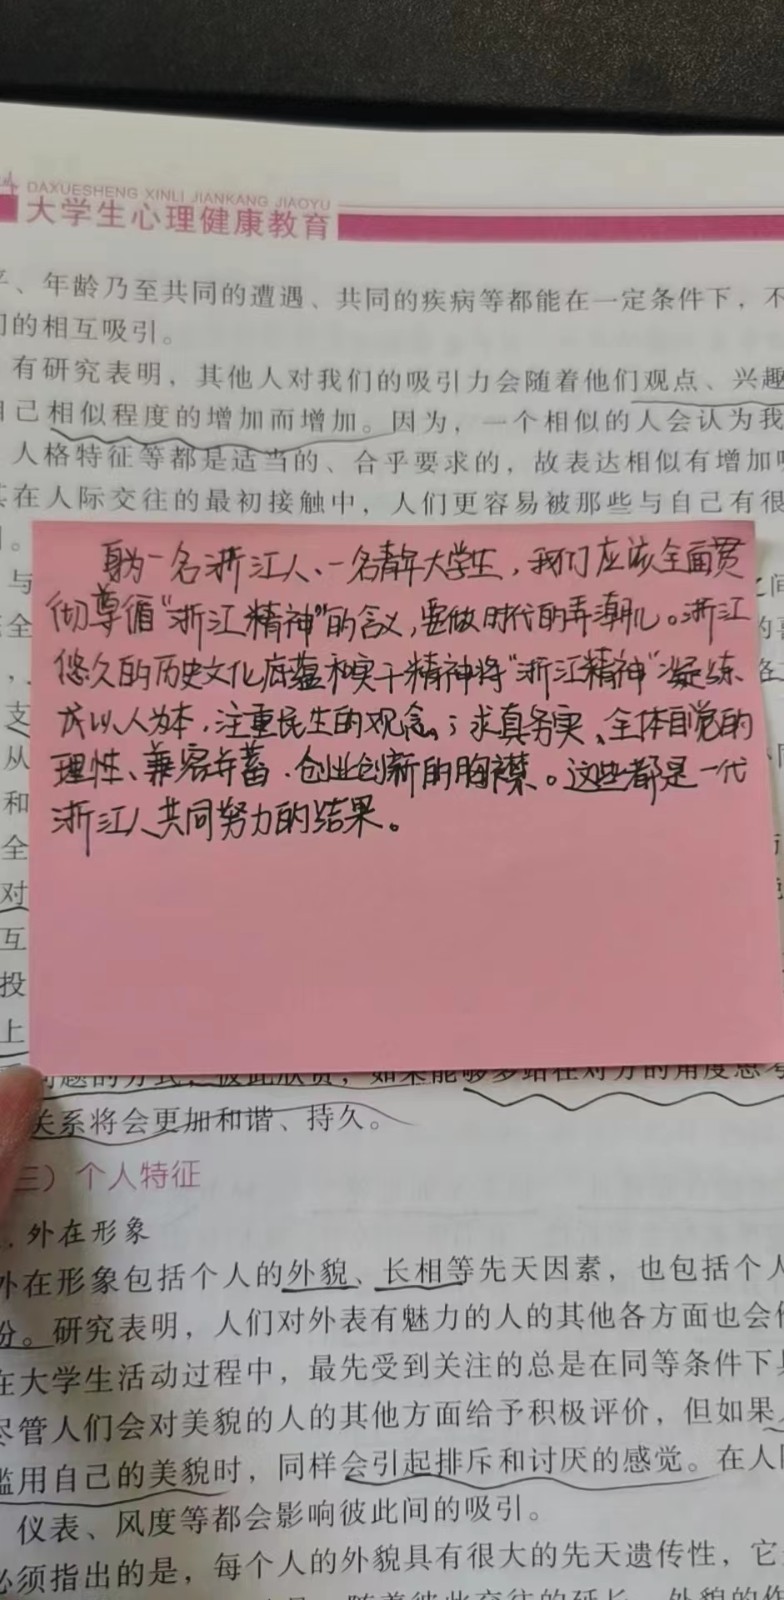 DAXUESHENG XINLI JIANKANG JIAOYU
大学生心理健康教育
、年龄乃至共同的遭遇、共同的疾病等都能在一定条件下，不
的相互吸引。
有研究表明，其他人对我们的吸引力会随着他们观点、兴趣
自己相似程度的增加而增加。因为，一个相似的人会认为我
人格特征等都是适当的、合乎要求的，故表达相似有增加
在人际交往的最初接触中，人们更容易被那些与自己有很
身为一名浙江人、一名青年大学生，我们应该全面贯
彻尊循“浙江精神”的含义，要做时代的弄潮儿。浙江
悠久的历史文化底蕴和实干精神将“浙江精神”凝练
成以人为本，注重民生的观念；求真务实、全体自觉的
理性、兼容并蓄、创业创新的胸襟。这些都是一代
浙江人共同努力的结果。
与
全
支
从
和
全
对
互
投
上
问题的方式，彼此欣赏，如果能够多站在对方的角度思考
关系将会更加和谐、持久。
三）个人特征
外在形象
外在形象包括个人的外貌、长相等先天因素，也包括个人
份。研究表明，人们对外表有魅力的人的其他各方面也会作
在大学生活动过程中，最先受到关注的总是在同等条件下具
尽管人们会对美貌的人的其他方面给予积极评价，但如果人
滥用自己的美貌时，同样会引起排斥和讨厌的感觉。在人际
仪表、风度等都会影响彼此间的吸引。
必须指出的是，每个人的外貌具有很大的先天遗传性，它